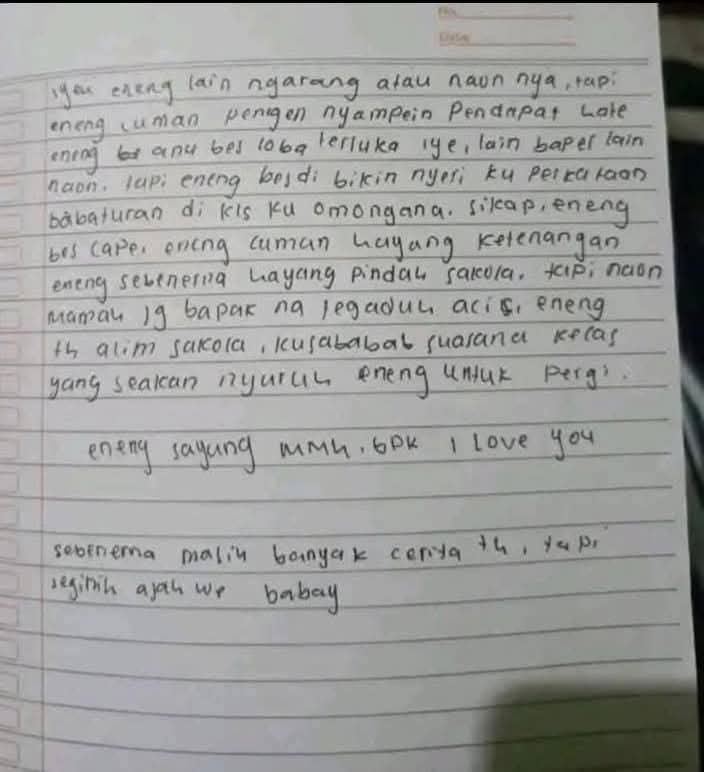 No.
Date
iyeu eneng lain ngarang atau naon nya, tapi
eneng cuman pengen nyampein Pendapat hate
eneng anu bes loba terluka iye, lain baper lain
naon. tapi eneng bes di bikin nyeri ku perkataan
babaturan di kls ku omongana. sikap, eneng
bes cape, eneng cuman hayang ketenangan
eneng sebenerna hayang pindah sakola. tapi naon
mamah jg bapak na tegaduh acis, eneng
th alim sakola, kusababab suasana kelas
yang seakan nyuruh eneng untuk pergi.
eneng sayang mmh, bpk I Love you
sebenerna masih banyak cerita th, tapi
segitih ajah we babay